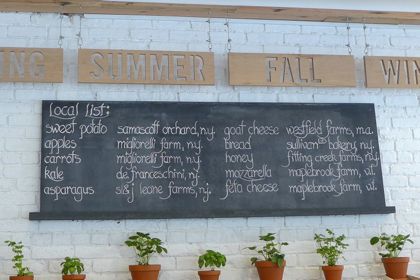 ING SUMMER FALL WIN
Local list:
sweet potato samascott orchard, n.y. goat cheese westfield farms, m.a.
apples migliorelli farm, n.y. bread sullivan bakery, n.y.
carrots migliorelli farm, n.y. honey fitting creek farms, n.y.
kale de franceschini, n.j. mozzarella maplebrook farm, v.t.
asparagus s&j leone farms, n.j. feta cheese maplebrook farm, v.t.